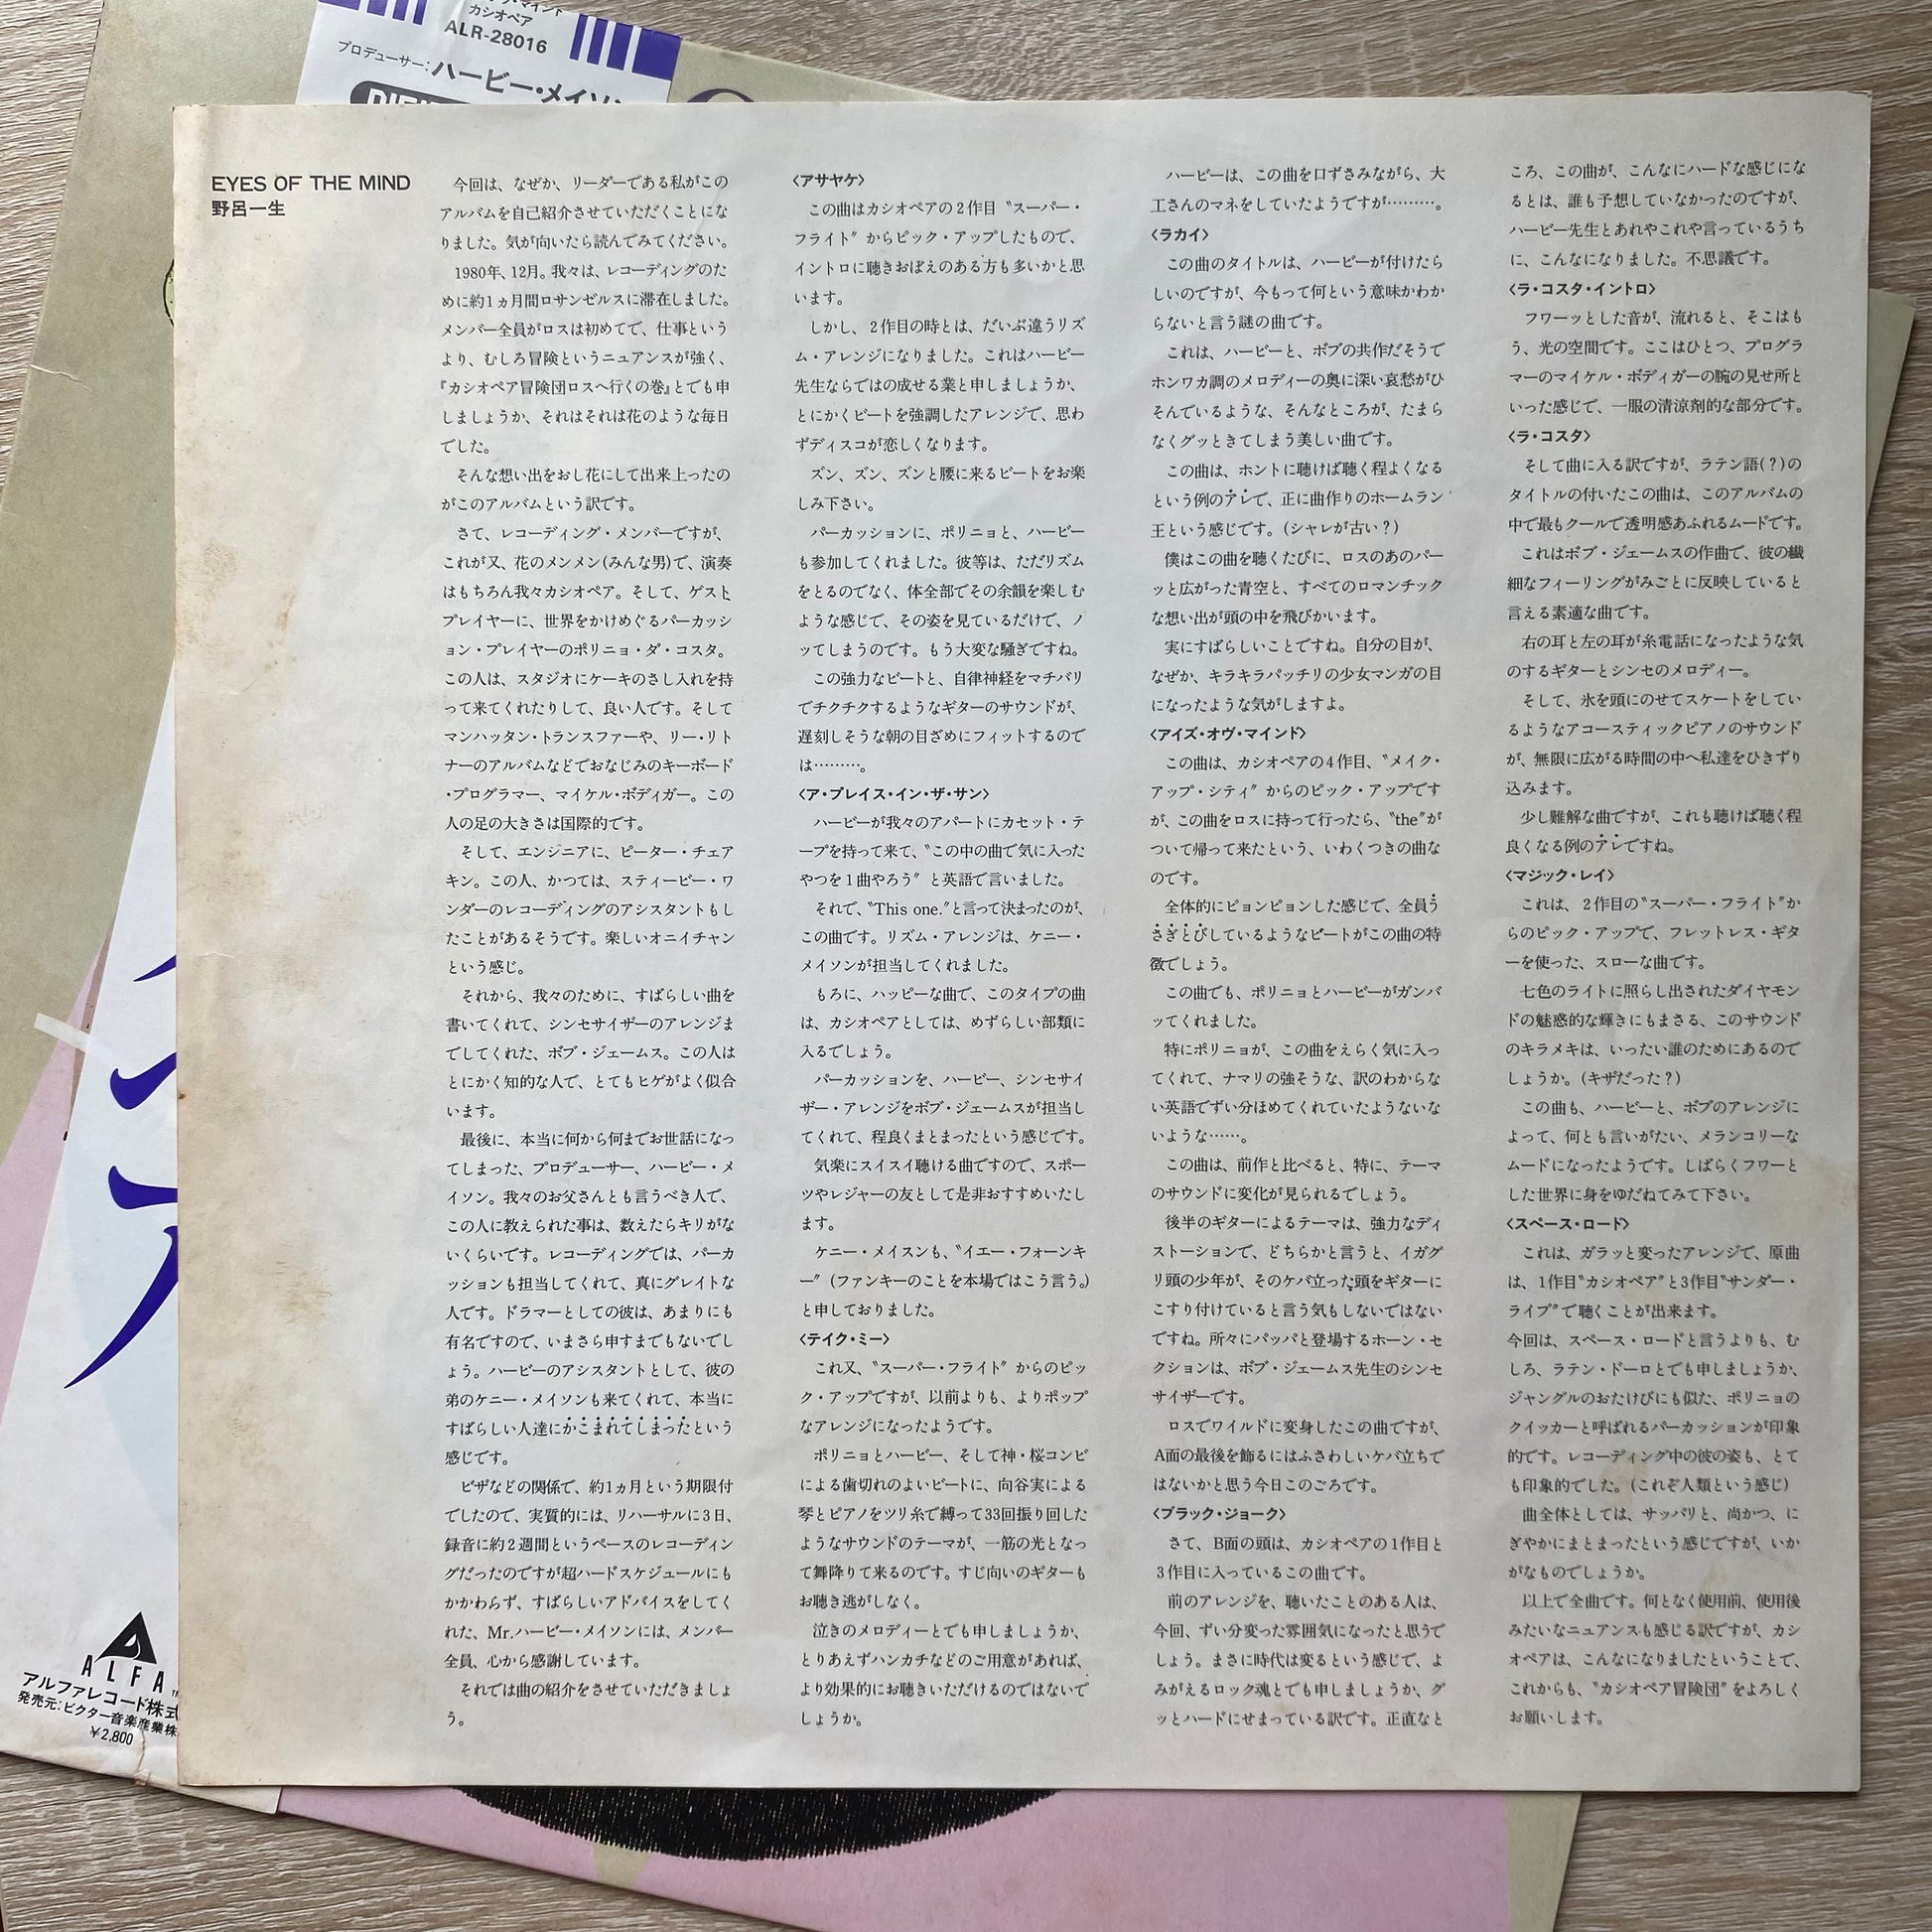 カシオペア
ALR-28016
プロデューサー:ハービー・メイソン
EYES OF THE MIND
野呂一生
今回は、なぜか、リーダーである私がこの
アルバムを自己紹介させていただくことにな
りました。気が向いたら読んでみてください。
1980年、12月。我々は、レコーディングのた
めに約1ヵ月間ロサンゼルスに滞在しました。
メンバー全員がロスは初めてで、仕事という
より、むしろ冒険というニュアンスが強く、
『カシオペア冒険団ロスへ行くの巻』とでも申
しましょうか、それはそれは花のような毎日
でした。
そんな想い出をおし花にして出来上ったの
がこのアルバムという訳です。
さて、レコーディング・メンバーですが、
これが又、花のメンメン(みんな男)で、演奏
はもちろん我々カシオペア。そして、ゲスト
プレイヤーに、世界をかけめぐるパーカッシ
ョン・プレイヤーのポリニョ・ダ・コスタ。
この人は、スタジオにケーキのさし入れを持
って来てくれたりして、良い人です。そして
マンハッタン・トランスファーや、リー・リト
ナーのアルバムなどでおなじみのキーボード
・プログラマー、マイケル・ボディガー。この
人の足の大きさは国際的です。
そして、エンジニアに、ピーター・チェア
キン。この人、かつては、スティービー・ワ
ンダーのレコーディングのアシスタントもし
たことがあるそうです。楽しいオニイチャン
という感じ。
それから、我々のために、すばらしい曲を
書いてくれて、シンセサイザーのアレンジま
でしてくれた、ボブ・ジェームス。この人は
とにかく知的な人で、とてもヒゲがよく似合
います。
最後に、本当に何から何までお世話になっ
てしまった、プロデューサー、ハービー・メ
イソン。我々のお父さんとも言うべき人で、
この人に教えられた事は、数えたらキリがな
いくらいです。レコーディングでは、パーカ
ッションも担当してくれて、真にグレイトな
人です。ドラマーとしての彼は、あまりにも
有名ですので、いまさら申すまでもないでし
ょう。ハービーのアシスタントとして、彼の
弟のケニー・メイソンも来てくれて、本当に
すばらしい人達にかこまれてしまったという
感じです。
ビザなどの関係で、約1ヵ月という期限付
でしたので、実質的には、リハーサルに3日、
録音に約2週間というペースのレコーディン
グだったのですが超ハードスケジュールにも
かかわらず、すばらしいアドバイスをしてく
れた、Mr.ハービー・メイソンには、メンバー
全員、心から感謝しています。
それでは曲の紹介をさせていただきましょ
う。
〈アサヤケ〉
この曲はカシオペアの2作目〝スーパー・
フライト〟からピック・アップしたもので、
イントロに聴きおぼえのある方も多いかと思
います。
しかし、2作目の時とは、だいぶ違うリズ
ム・アレンジになりました。これはハービー
先生ならではの成せる業と申しましょうか、
とにかくビートを強調したアレンジで、思わ
ずディスコが恋しくなります。
ズン、ズン、ズンと腰に来るビートをお楽
しみ下さい。
パーカッションに、ポリニョと、ハービー
も参加してくれました。彼等は、ただリズム
をとるのでなく、体全部でその余韻を楽しむ
ような感じで、その姿を見ているだけで、ノ
ッてしまうのです。もう大変な騒ぎですね。
この強力なビートと、自律神経をマチバリ
でチクチクするようなギターのサウンドが、
遅刻しそうな朝の目ざめにフィットするので
は………。
〈ア・プレイス・イン・ザ・サン〉
ハービーが我々のアパートにカセット・テ
ープを持って来て、〝この中の曲で気に入った
やつを1曲やろう〟と英語で言いました。
それで、〝This one.〟と言って決まったのが、
この曲です。リズム・アレンジは、ケニー・
メイソンが担当してくれました。
もろに、ハッピーな曲で、このタイプの曲
は、カシオペアとしては、めずらしい部類に
入るでしょう。
パーカッションを、ハービー、シンセサイ
ザー・アレンジをボブ・ジェームスが担当し
てくれて、程良くまとまったという感じです。
気楽にスイスイ聴ける曲ですので、スポー
ツやレジャーの友として是非おすすめいたし
ます。
ケニー・メイスンも、〝イエー・フォーンキ
ー〟(ファンキーのことを本場ではこう言う。)
と申しておりました。
〈テイク・ミー〉
これ又、〝スーパー・フライト〟からのピッ
ク・アップですが、以前よりも、よりポップ
なアレンジになったようです。
ポリニョとハービー、そして神・桜コンビ
による歯切れのよいビートに、向谷実による
琴とピアノをツリ糸で縛って33回振り回した
ようなサウンドのテーマが、一筋の光となっ
て舞降りて来るのです。すじ向いのギターも
お聴き逃がしなく。
泣きのメロディーとでも申しましょうか、
とりあえずハンカチなどのご用意があれば、
より効果的にお聴きいただけるのではないで
しょうか。
ハービーは、この曲を口ずさみながら、大
工さんのマネをしていたようですが………。
〈ラカイ〉
この曲のタイトルは、ハービーが付けたら
しいのですが、今もって何という意味かわか
らないと言う謎の曲です。
これは、ハービーと、ボブの共作だそうで
ホンワカ調のメロディーの奥に深い哀愁がひ
そんでいるような、そんなところが、たまら
なくグッときてしまう美しい曲です。
この曲は、ホントに聴けば聴く程よくなる
という例のアレで、正に曲作りのホームラン
王という感じです。(シャレが古い?)
僕はこの曲を聴くたびに、ロスのあのパー
ッと広がった青空と、すべてのロマンチック
な想い出が頭の中を飛びかいます。
実にすばらしいことですね。自分の目が、
なぜか、キラキラパッチリの少女マンガの目
になったような気がしますよ。
〈アイズ・オヴ・マインド〉
この曲は、カシオペアの4作目、〝メイク・
アップ・シティ〟からのピック・アップです
が、この曲をロスに持って行ったら、〝the〟が
ついて帰って来たという、いわくつきの曲な
のです。
全体的にピョンピョンした感じで、全員う
さぎとびしているようなビートがこの曲の特
徴でしょう。
この曲でも、ポリニョとハービーがガンバ
ッてくれました。
特にポリニョが、この曲をえらく気に入っ
てくれて、ナマリの強そうな、訳のわからな
い英語でずい分ほめてくれていたようないな
いような……。
この曲は、前作と比べると、特に、テーマ
のサウンドに変化が見られるでしょう。
後半のギターによるテーマは、強力なディ
ストーションで、どちらかと言うと、イガグ
リ頭の少年が、そのケバ立った頭をギターに
こすり付けていると言う気もしないではない
ですね。所々にパッパと登場するホーン・セ
クションは、ボブ・ジェームス先生のシンセ
サイザーです。
ロスでワイルドに変身したこの曲ですが、
A面の最後を飾るにはふさわしいケバ立ちで
はないかと思う今日このごろです。
〈ブラック・ジョーク〉
さて、B面の頭は、カシオペアの1作目と
3作目に入っているこの曲です。
前のアレンジを、聴いたことのある人は、
今回、ずい分変った雰囲気になったと思うで
しょう。まさに時代は変るという感じで、よ
みがえるロック魂とでも申しましょうか、グ
ッとハードにせまっている訳です。正直なと
ころ、この曲が、こんなにハードな感じにな
るとは、誰も予想していなかったのですが、
ハービー先生とあれやこれや言っているうち
に、こんなになりました。不思議です。
〈ラ・コスタ・イントロ〉
フワーッとした音が、流れると、そこはも
う、光の空間です。ここはひとつ、プログラ
マーのマイケル・ボディガーの腕の見せ所と
いった感じで、一服の清涼剤的な部分です。
〈ラ・コスタ〉
そして曲に入る訳ですが、ラテン語(?)の
タイトルの付いたこの曲は、このアルバムの
中で最もクールで透明感あふれるムードです。
これはボブ・ジェームスの作曲で、彼の繊
細なフィーリングがみごとに反映していると
言える素適な曲です。
右の耳と左の耳が糸電話になったような気
のするギターとシンセのメロディー。
そして、氷を頭にのせてスケートをしてい
るようなアコースティックピアノのサウンド
が、無限に広がる時間の中へ私達をひきずり
込みます。
少し難解な曲ですが、これも聴けば聴く程
良くなる例のアレですね。
〈マジック・レイ〉
これは、2作目の〝スーパー・フライト〟か
らのピック・アップで、フレットレス・ギタ
ーを使った、スローな曲です。
七色のライトに照らし出されたダイヤモン
ドの魅惑的な輝きにもまさる、このサウンド
のキラメキは、いったい誰のためにあるので
しょうか。(キザだった?)
この曲も、ハービーと、ボブのアレンジに
よって、何とも言いがたい、メランコリーな
ムードになったようです。しばらくフワーと
した世界に身をゆだねてみて下さい。
〈スペース・ロード〉
これは、ガラッと変ったアレンジで、原曲
は、1作目〝カシオペア〟と3作目〝サンダー・
ライブ〟で聴くことが出来ます。
今回は、スペース・ロードと言うよりも、む
しろ、ラテン・ドーロとでも申しましょうか、
ジャングルのおたけびにも似た、ポリニョの
クイッカーと呼ばれるパーカッションが印象
的です。レコーディング中の彼の姿も、とて
も印象的でした。(これぞ人類という感じ)
曲全体としては、サッパリと、尚かつ、に
ぎやかにまとまったという感じですが、いか
がなものでしょうか。
以上で全曲です。何となく使用前、使用後
みたいなニュアンスも感じる訳ですが、カシ
オペアは、こんなになりましたということで、
これからも、〝カシオペア冒険団〟をよろしく
お願いします。
ALFA
アルファレコード株式
発売元:ビクター音楽産業株
¥2,800